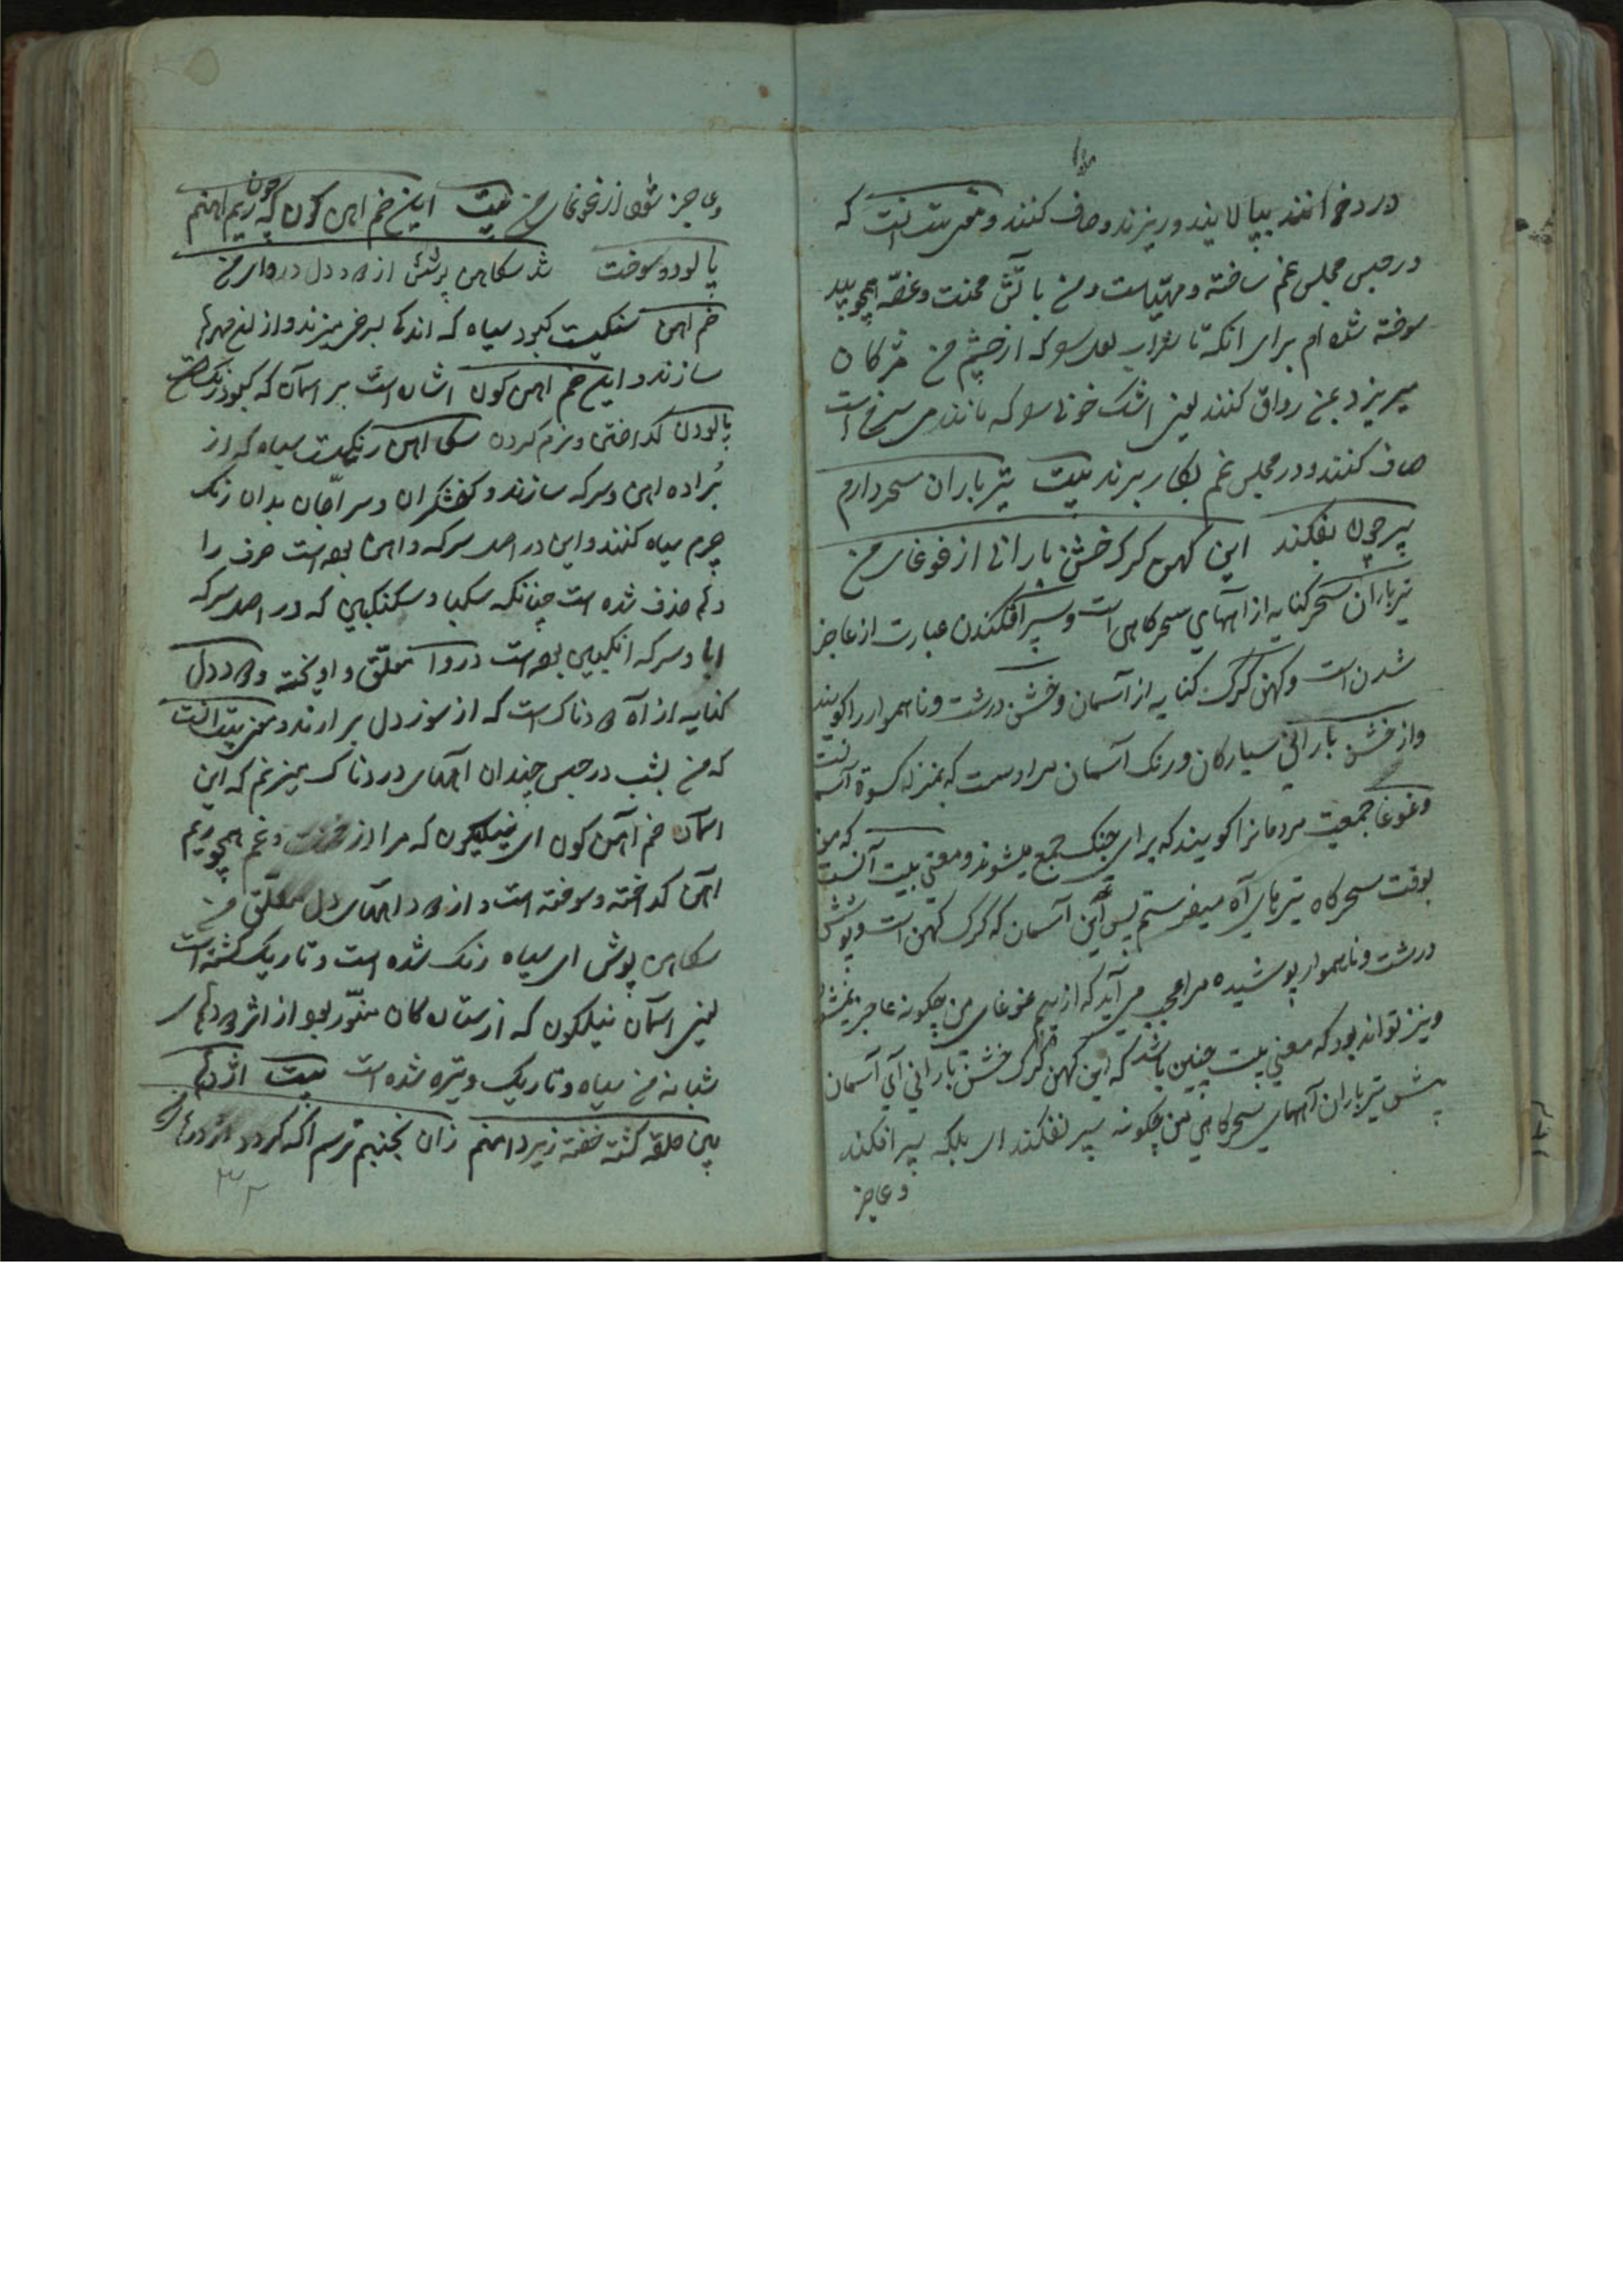 در دخانند بپالایند و ریزند و صاف کنند و معنی بیت آنست که
در حبس مجلس غم ساخته و مهیاست و من با آتش محنت و غصه همچو بید
سوخته شده ام برای آنکه تا شراب لعل سو که از چشم من مژکان
میریزد عن رواق کنند یعنی اشک خونی سو که مانند می سرخ است
صاف کنند و در مجلس غم بکار برند بیت تیر باران سحر دارم
سپر چون نفکند این کهن کرک خشن بارانی از غوغای من
تیرباران سحر کنایه از آههای سحرکاهی است و سپر افکندن عبارت از عاجز
شدن است و کهن کرک کنایه از آسمان و خشن درشت و ناهموار را کویند
و از خشن بارانی سیارکان و رنک آسمان مراد است که بمنزله کسوة آسمانست
و غوغا جمعیت مردمانرا کویند که برای جنک جمع میشوند و معنی بیت آنست که من
بوقت سحرکاه تیرهای آه میفرستم پس این آسمان که کرک کهن است و پوشش
درشت و ناهموار پوشیده مرا عجب می آید که از بیم غوغای من چکونه عاجز نمیشود
و نیز تواند بود که معنی بیت چنین باشد که این کهن کرک خشن بارانی ای آسمان
پیش تیرباران آههای سحرکاهی من چکونه سپر نفکند ای بلکه سپر افکند
و عاجز
و عاجز شود از غوغای من بیت این خم آهن کون که چون ریم آهنم
پالود و سوخت شد سکاهن پوشش از دود دل دروای من
خم آهن سنکیست کبود سیاه که اندک بسرخی میزند و از آن مهرها
سازند و این خم آهن کون اشارت است بر آسمان که کبود رنک است
پالودن کداختن و نرم کردن سکاهن رنکیست سیاه که از
براده آهن و سرکه سازند و کفشکران و سراجان بدان رنک
چرم سیاه کنند و این در اصل سرکه و آهن بوده است حرف را
و ها حذف شده است چنانکه سکبا و سکنکبین که در اصل سرکه
ابا و سرکه انکبین بوده است دروا معلق و آویخته و دود دل
کنایه از آه دردناک است که از سوز دل برآرند و معنی بیت آنست
که من بشب در حبس چندان آههای دردناک میزنم که این
آسمان خم آهن کون ای نیلکون که مرا از محنت و غم همچو ریم
آهن کداخته و سوخته است و از دود آههای دل معلق من
سکاهن پوش ای سیاه رنک شده است و تاریک کشته است
یعنی آسمان نیلکون که از ستارکان منور بود از اثر دودهای
شبانه من سیاه و تاریک و تیره شده است بیت اژدها
بین حلقه کشته خفته زیر دامنم زان نجنبم ترسم آکه کردد اژدرهای من
۳۲